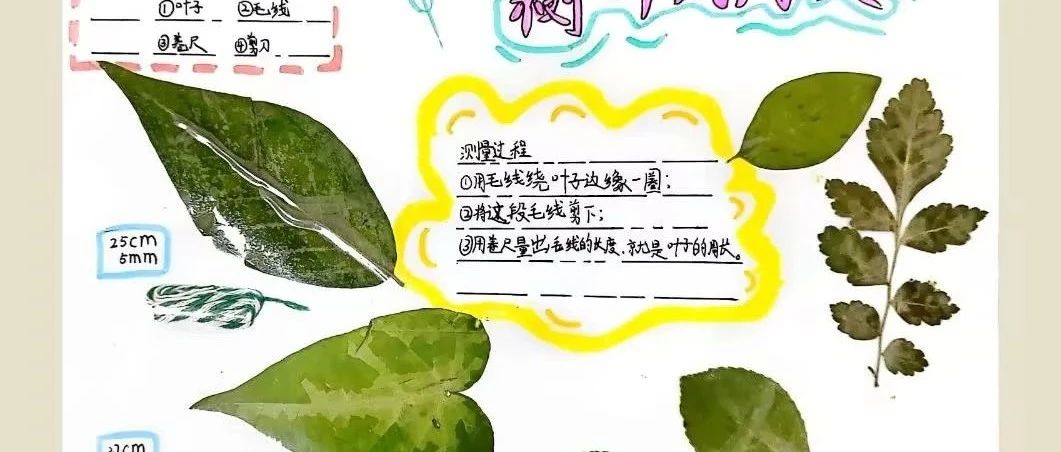 ①叶子 ②毛线
③卷尺 ④剪刀
测量过程
①用毛线绕叶子边缘一圈;
②将这段毛线剪下;
③用卷尺量出毛线的长度,就是叶子的周长。
25cm
5mm